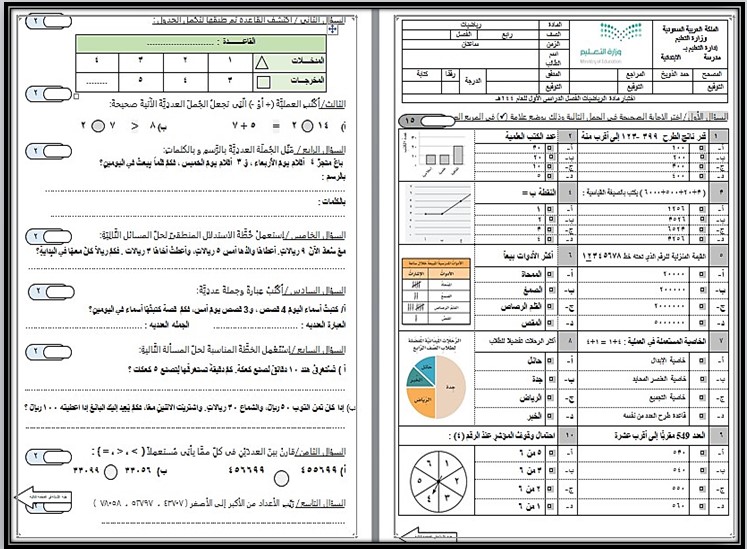 المملكة العربية السعودية
وزارة التعليم
إدارة تعليم بـ
مدرسة الابتدائية
وزارة التعليم
Ministry of Education
المادة رياضيات
الصف رابع الفصل
الزمن ساعتان
اسم الطالب
المصحح حمد الذويخ المراجع المدقق الدرجة رقما كتابة
التوقيع التوقيع التوقيع
السؤال الأول / اختر الإجابة الصحيحة في الجمل التالية وذلك بوضع علامة (✓) في المربع
١٥
١ قدر ناتج الطرح ٣٩٩ - ١٢٣ إلى أقرب مئة
أ- ١٠٠
ب- ٢٠٠
ج- ٣٠٠
د- ٤٠٠
٢ عدد الكتب العلمية
أ- ٣٠
ب- ٢٠
ج- ١٠
د- ٥
٣ (٤+٢٠+٥٠٠+٦٠٠٠) يكتب بالصيغة القياسية :
أ- ١٢٥٦
ب- ٤٥٢٦
ج- ٦٥٢٤
د- ٤٢٥٦
٤ النقطة ب =
أ- ١
ب- ٢
ج- ٣
د- ٤
٥ القيمة المنزلية للرقم الذي تحته خط ١٢٣٤٥٦٧٨
أ- ٢٠٠٠٠
ب- ٢٠٠٠٠٠
ج- ٢٠٠٠٠٠٠
د- ٥٠٠٠٠٠٠
٦ أكثر الأدوات بيعاً
أ- الممحاة
ب- الصمغ
ج- القلم الرصاص
د- المقص
الأدوات الإشارات
الممحاة
الصمغ
القلم الرصاص
المقص
٧ الخاصية المستعملة في العملية : ٤+١ = ١+٤
أ- خاصية الإبدال
ب- خاصية العنصر المحايد
ج- خاصية التجميع
د- قاعدة طرح العدد من نفسه
٨ أكثر الرحلات تفضيلا للطلاب
أ- حائل
ب- جدة
ج- الرياض
د- الخبر
الرحلات الميدانية المفضلة
لطلاب الصف الرابع
حائل
الخبر
جدة
الرياض
٩ العدد 549 مقربًا إلى أقرب عشرة
أ- ٥٣٠
ب- ٥٤٠
ج- ٥٥٠
د- ٥٦٠
١٠ احتمال وقوف المؤشر عند الرقم (٤) :
أ- ٥ من ٦
ب- ٣ من ٦
ج- ٢ من ٦
د- ١ من ٦
١ ٢ ٣ ٤ ٥ ٦
السؤال الثاني / اكتشف القاعدة ثم طبقها لتكمل الجدول :
٢
القاعـــدة :
المدخــلات ١ ٢ ٣ ٤
المخرجـات ٣ ٤ ٥
٢
الثالث/ أكتب العملية (+ أو -) التي تجعل الجمل العددية الآتية صحيحة:
أ) ١٤ ٢ = ٥ + ٧ ب) ٧ < ٨ ٧ ٢
السؤال الرابع / مثل الجملة العددية بالرسم و بالكلمات:
٢
باع متجر ٤ أقلام يوم الأربعاء ، و ٣ أقلام يوم الخميس ، فكم قلماً يبعث في اليومين؟
بالرسم :
بالكلمات :
السؤال الخامس / إستعمل خطة الاستدلال المنطقي لحل المسائل التالية:
٢
مع سعد الآن ٩ ريالات. أعطاها والدها أمس ٥ ريالات، وأعطت أخاها ٣ ريالات . فكم ريالاً كان معها في البداية؟
السؤال السادس / أكتب عبارة وجملة عددية:
٢
أ/ كتبت أسماء اليوم 4 قصص ، و3 قصص يوم أمس. فكم قصة كتبتها أسماء في اليومين؟
العبارة العدديه : الجمله العدديه :
السؤال السابع / إستعمل الخطة المناسبة لحل المسألة التالية:
٢
أ ) تستغرق هند ١٠ دقائق لصنع كعكة. كم دقيقة تستغرقها لتصنع ٥ كعكات ؟
ب) إذا كان ثمن الثوب ٥٠ ريال، والشماغ ٣٠ ريالات. واشتريت الاثنين معًا. فكم يعيد إليك البائع إذا اعطيته ١٠٠ ريال ؟
السؤال الثامن/ قارن بين العددين في كل مما يأتي مستعملاً ( > ، < ، = ) :
٢
أ ) ٤٥٥٦٩٩ ٤٥٦٦٩٩ ب) ٣٣٠٥٦ ٣٣٠٩٩
السؤال التاسع / رتب الأعداد من الأكبر إلى الأصغر ( ٤٣٧٠٧ ، ٥٦٧٩٧ ، ٧٨٠٥٨ )
٢